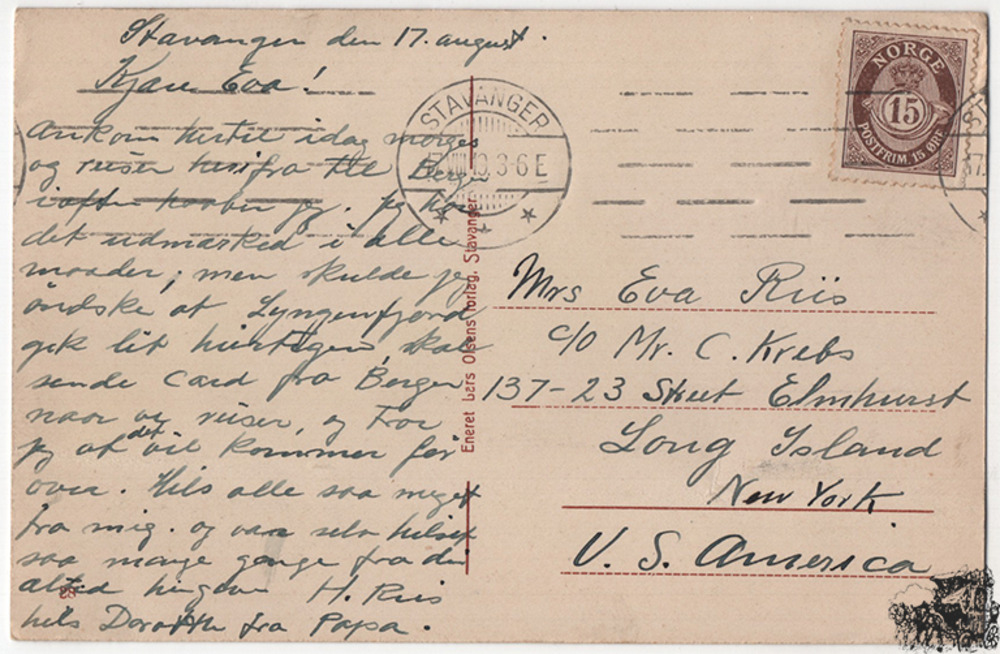 Stavanger den 17. august.
Kjære Eva!
Ankom hertil idag morges
og reiser herifra til Bergen
iaften haaber jeg. jeg har
det udmærked i alle
maader, men skulde jeg
öndske at Lyngenfjord
gik lit hurtigere, skal
sende Card fra Bergen
naar vi reiser, og tror
jeg at det vil kommer før
over. Hils alle saa meget
fra mig. og vær selv hilset
saa mange gange fra din
altid hengivne H. Riis
hils Dorothe fra Papa.
Eneret Lars Olsens forlag. Stavanger.
STAVANGER
VIII 13. 3-6 E
NORGE
15
POSTFRIM. 15 ØRE
Mrs Eva Riis
c/o Mr. C. Krebs
137-23 Street Elmhurst
Long Island
New York
U. S. America